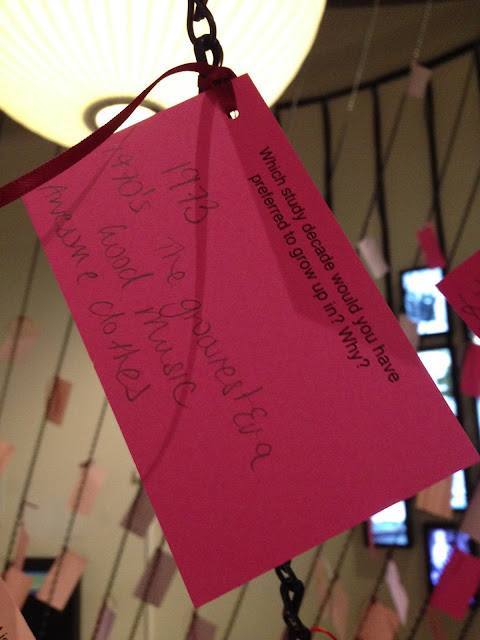 Which study decade would you have
preferred to grow up in? Why?
1973 The groovrest Era
1970's Good music
Awesome clothes